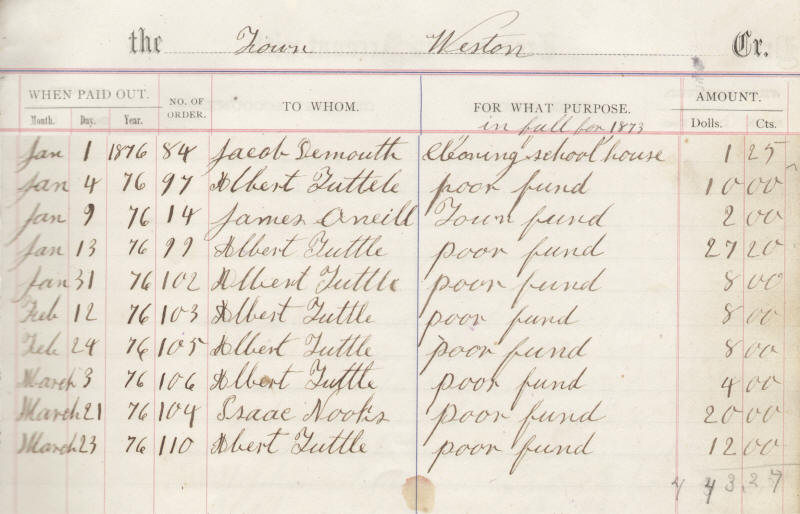 the Town Weston Cr.
WHEN PAID OUT. NO. OF ORDER. TO WHOM. FOR WHAT PURPOSE. AMOUNT.
Month. Day. Year. Dolls. Cts.
in full for 1873
Jan 1 1876 84 Jacob Demouth cleaning school house 1 25
Jan 4 76 97 Albert Tuttele poor fund 10 00
Jan 9 76 14 James Oneill Town fund 2 00
Jan 13 76 99 Albert Tuttle poor fund 27 20
Jan 31 76 102 Albert Tuttle poor fund 8 00
Feb 12 76 103 Albert Tuttle poor fund 8 00
Feb 24 76 105 Albert Tuttle poor fund 8 00
March 3 76 106 Albert Tuttle poor fund 4 00
March 21 76 104 Isaac Nooks poor fund 20 00
March 23 76 110 Albert Tuttle poor fund 12 00